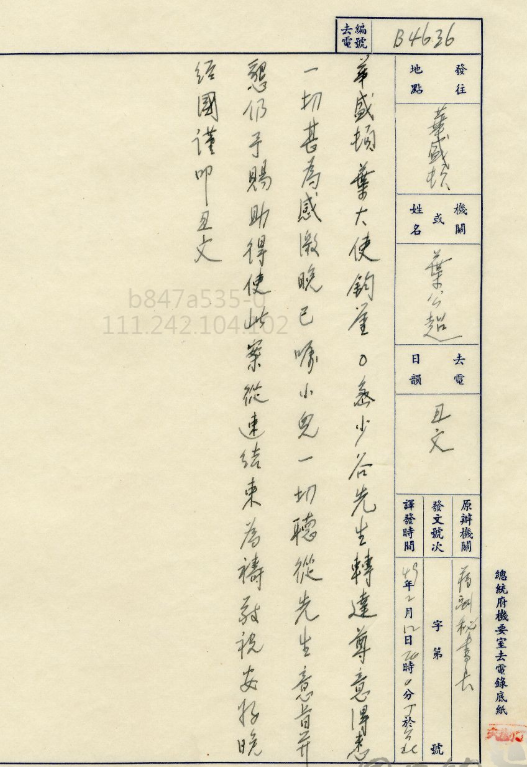 編號
去電
B4636
發往
地點
華盛頓
機關
或
姓名
葉公超
去電
日韻
丑文
原辦機關
發文號次
字第 號
譯發時間
49年2月12日 時0分
總統府機要室去電錄底紙
華盛頓葉大使鈞鑒0密少谷先生轉達尊意得悉
一切甚為感激晚已囑小兒一切聽從先生意旨并
懇仍予賜助得使此案從速結束為禱敬祝安好晚
經國謹叩丑文
b847a535-0
111.242.104.102